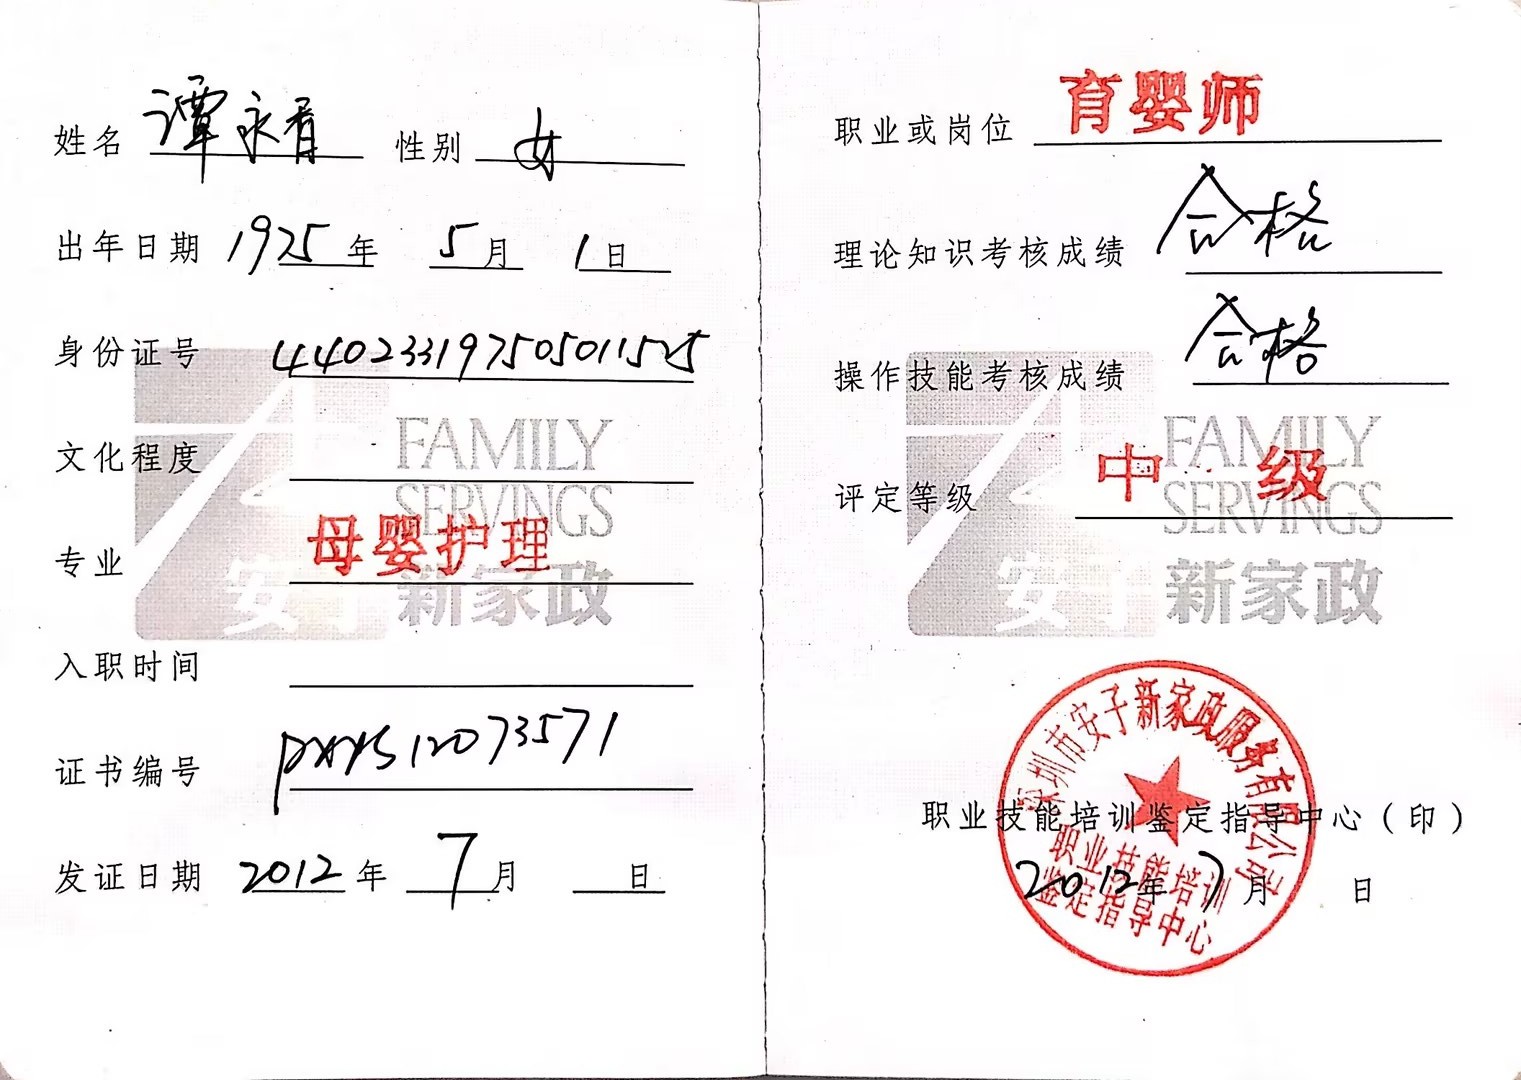 姓名 谭永香 性别 女
出年日期 1975 年 5 月 1 日
身份证号 440233197505011525
文化程度
专业 母婴护理
入职时间
证书编号 pxys12073571
发证日期 2012 年 7 月 日
FAMILY
SERVINGS
安子新家政
职业或岗位 育婴师
理论知识考核成绩 合格
操作技能考核成绩 合格
评定等级 中级
FAMILY
SERVINGS
安子新家政
深圳市安子新家政服务有限公司
职业技能培训鉴定指导中心（印）
职业技能培训
鉴定指导中心
2012 年 7 月 日